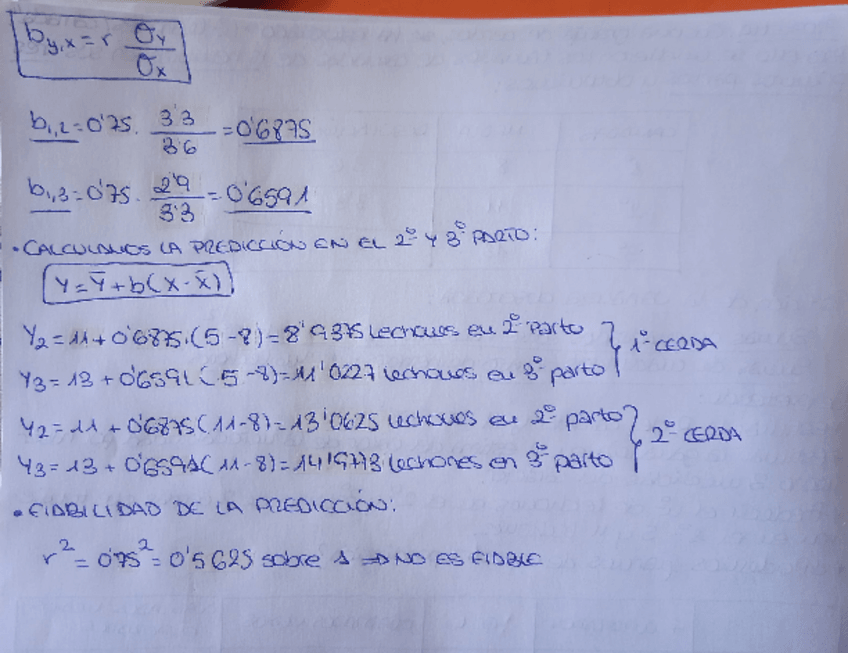 b y,x = r σy/σx
b1,2 = 0'75 · 3'3/3'6 = 0'6875
b1,3 = 0'75 · 2'9/3'3 = 0'6591
• CALCULAMOS LA PREDICCIÓN EN EL 2º Y 3º PARTO:
Y = Ȳ + b(X - X̄)
Y2 = 11 + 0'6875 · (5 - 8) = 8'9375 lechones en 2º parto
Y3 = 13 + 0'6591 (5 - 8) = 11'0227 lechones en 3º parto } 1º CERDA
Y2 = 11 + 0'6875 (11 - 8) = 13'0625 lechones en 2º parto
Y3 = 13 + 0'6591 (11 - 8) = 14'9773 lechones en 3º parto } 2º CERDA
• FIABILIDAD DE LA PREDICCIÓN:
r² = 0'75² = 0'5625 sobre 1 ⇒ NO ES FIABLE